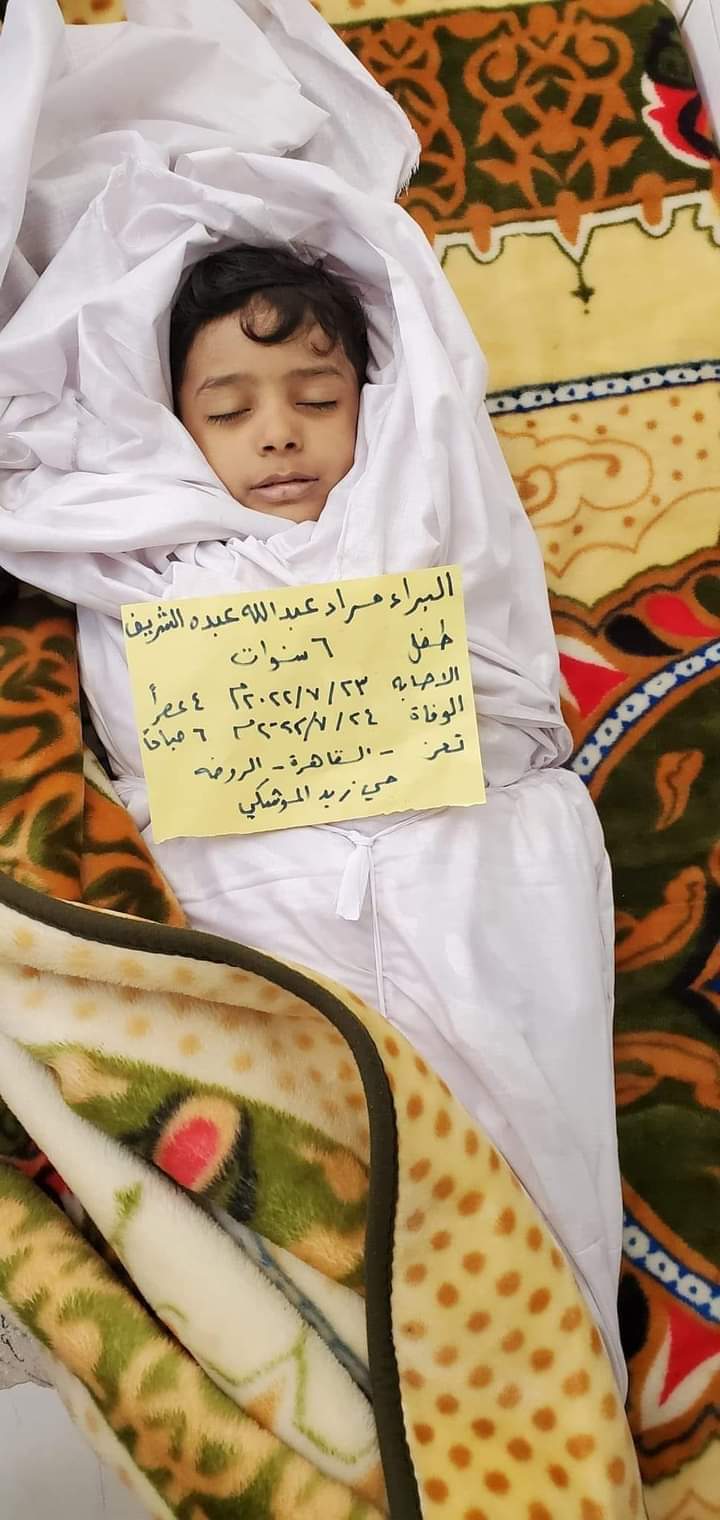 البراء مراد عبدالله عبده الشريف
طفل ٦ سنوات
الاصابه ٢٣/٧/٢٠٢٢م ٤ عصراً
الوفاة ٢٤/٧/٢٠٢٢م ٦ صباحاً
تعز - القاهرة - الروضه
حي زيد الموشكي